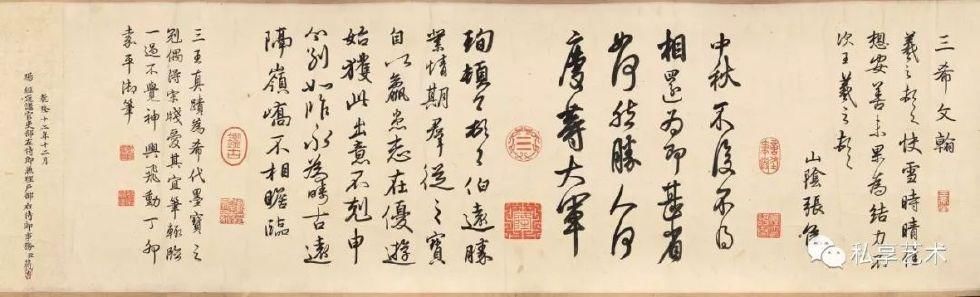 三希文翰
羲之頓首快雪時晴佳
想安善未果為結力不
次王羲之頓首
山陰張侯
中秋不復不得
相還為即甚省
如何然勝人何
慶等大軍
珣頓首頓首伯遠勝
業情期群從之寶
自以羸患志在優遊
始獲此出意不剋申
分別如昨永為疇古遠
隔嶺嶠不相瞻臨
三王真蹟為希代墨寶之
冠偶得宋牋愛其宜筆輒臨
一過不覺神與飛動丁卯
嘉平御筆
乾隆十二年十二月
經筵講官吏部左侍郎兼理戶部右侍郎事務
私享艺术